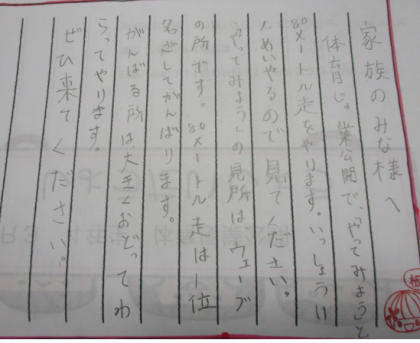 家族のみな様へ
体育じ。業公開で、「やってみよう」と
80メートル走をやります。いっしょうけ
んめいやるので見てください。
「やってみよう」の見所はウェーブ
の所です。80メートル走は一位
名ざしてがんばります。
がんばる所は大きくおどってわ
らってやります。
ぜひ来てください。